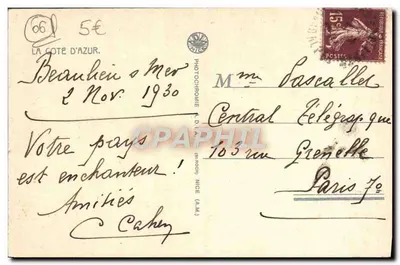 06
5€
LA COTE D'AZUR.
Beaulieu s Mer
2 Nov. 1930
Votre pays
est enchanteur !
Amitiés
C Cahen
PHOTOCHROMIE
NICE (A.M.)
15c
POSTES
Mme Pascallet
Central Télégraphique
103 rue Grenelle
Paris 7e
CPAPHIL